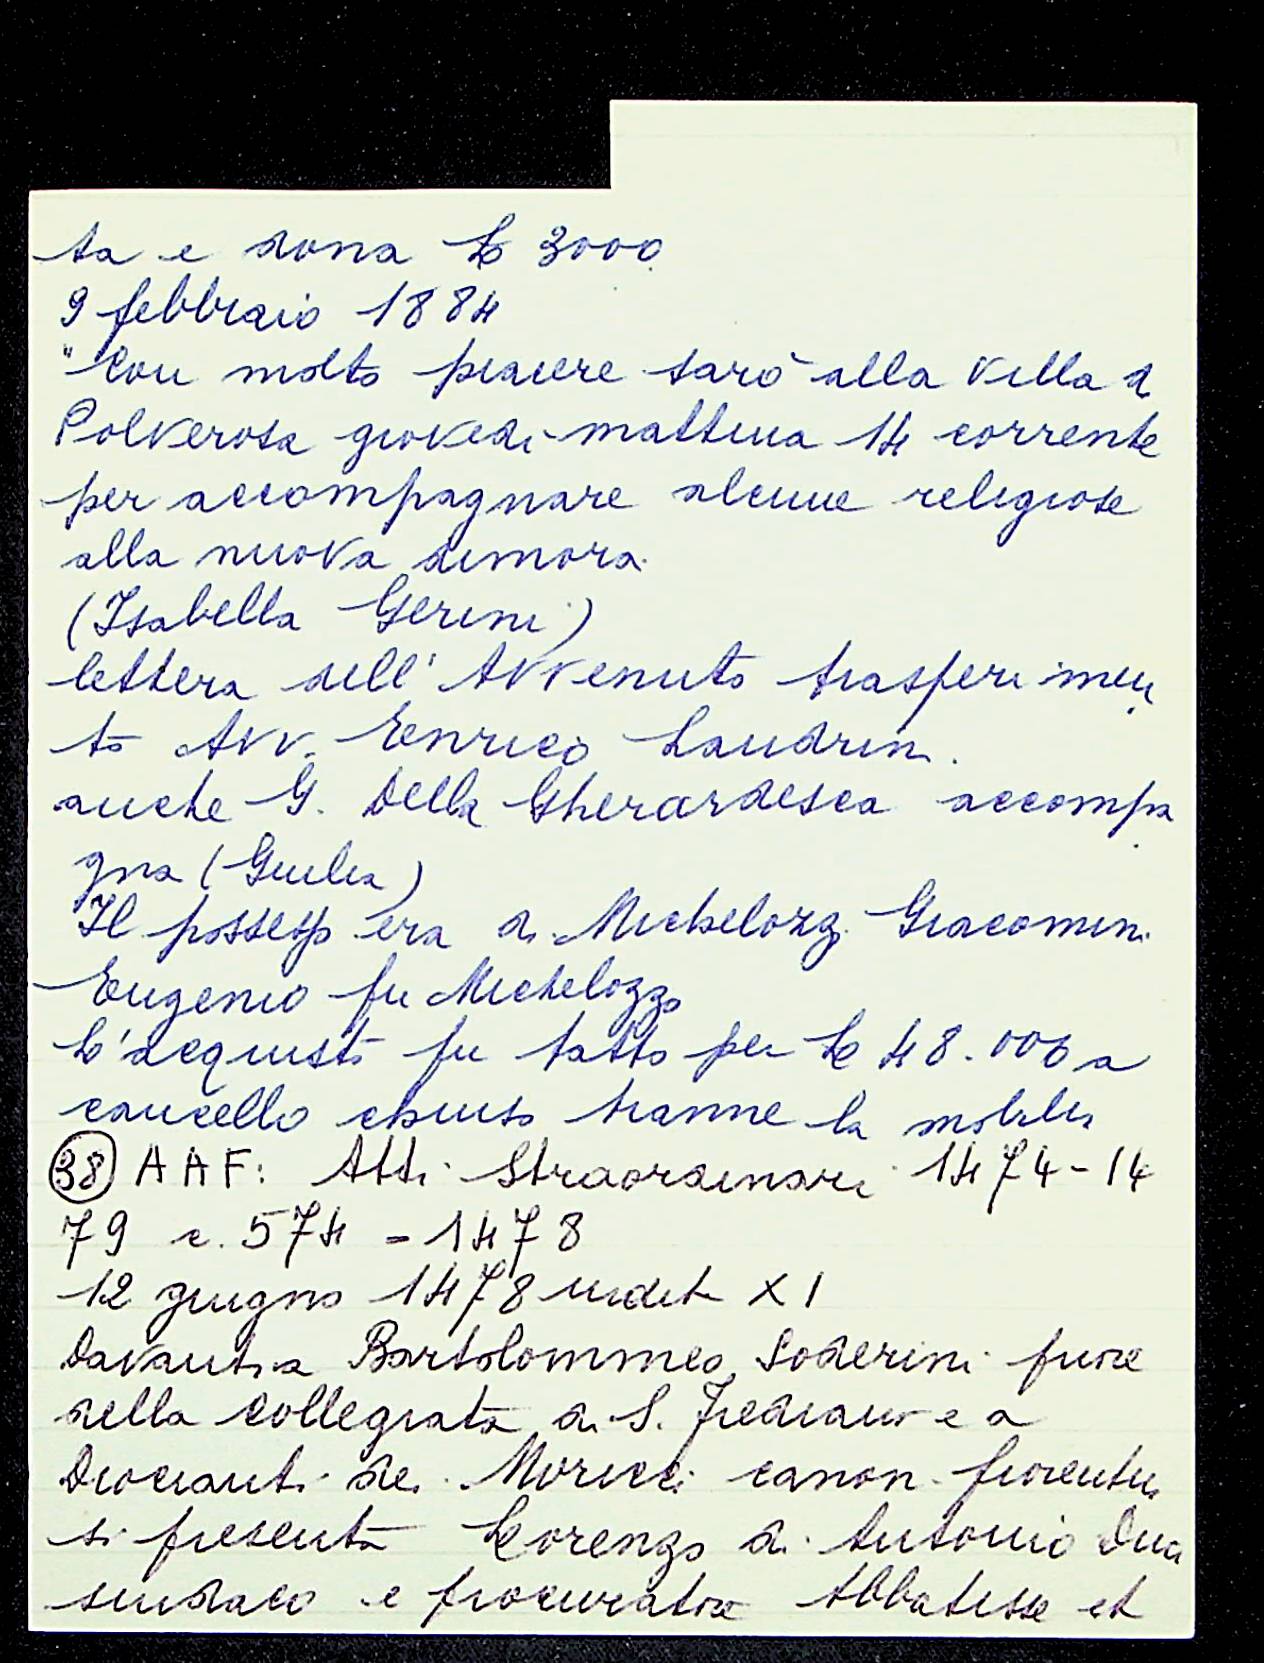 ta e dona £ 3000
9 febbraio 1884
"Con molto piacere sarò alla villa di
Polverosa giovedi mattina 14 corrente
per accompagnare alcune religiose
alla nuova dimora.
(Isabella Gerini)
lettera dell'Avvenuto trasferimen
to Avv. Enrico Landrini.
anche G. Della Gherardesca accompa
gna (Giulia)
Il possesso era di Michelozzi Giacomini
Eugenio fu Michelozzo
L'acquisto fu fatto per £ 48.000 a
cancello chiuso tranne la mobilia
(38) AAF: Atti Straordinari 1474-14
79 c. 574 - 1478
12 giugno 1478 indict XI
Davanti a Bartolommeo Soderini priore
della Collegiata di S. Frediano e a
Diociauti de Moricci canon. fiorentin
si presenta Lorenzo di Antonio
sindaco e procuratore Abbatisse et